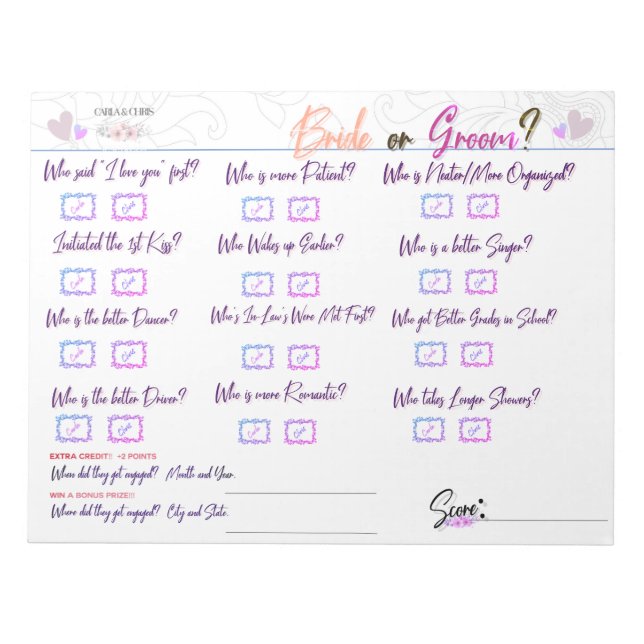 CARLA & CHRIS
Bride or Groom?
Who said "I love you" first?
Carla Chris
Initiated the 1st Kiss?
Carla Chris
Who is the better Dancer?
Carla Chris
Who is the better Driver?
Carla Chris
Who is more Patient?
Carla Chris
Who Wakes up Earlier?
Carla Chris
Who's In-Law's Were Met First?
Carla Chris
Who is more Romantic?
Carla Chris
Who is Neater/More Organized?
Carla Chris
Who is a better Singer?
Carla Chris
Who got Better Grades in School?
Carla Chris
Who takes Longer Showers?
Carla Chris
EXTRA CREDIT!! +2 POINTS
When did they get engaged? Month and Year.
WIN A BONUS PRIZE!!!
Where did they get engaged? City and State.
Score: